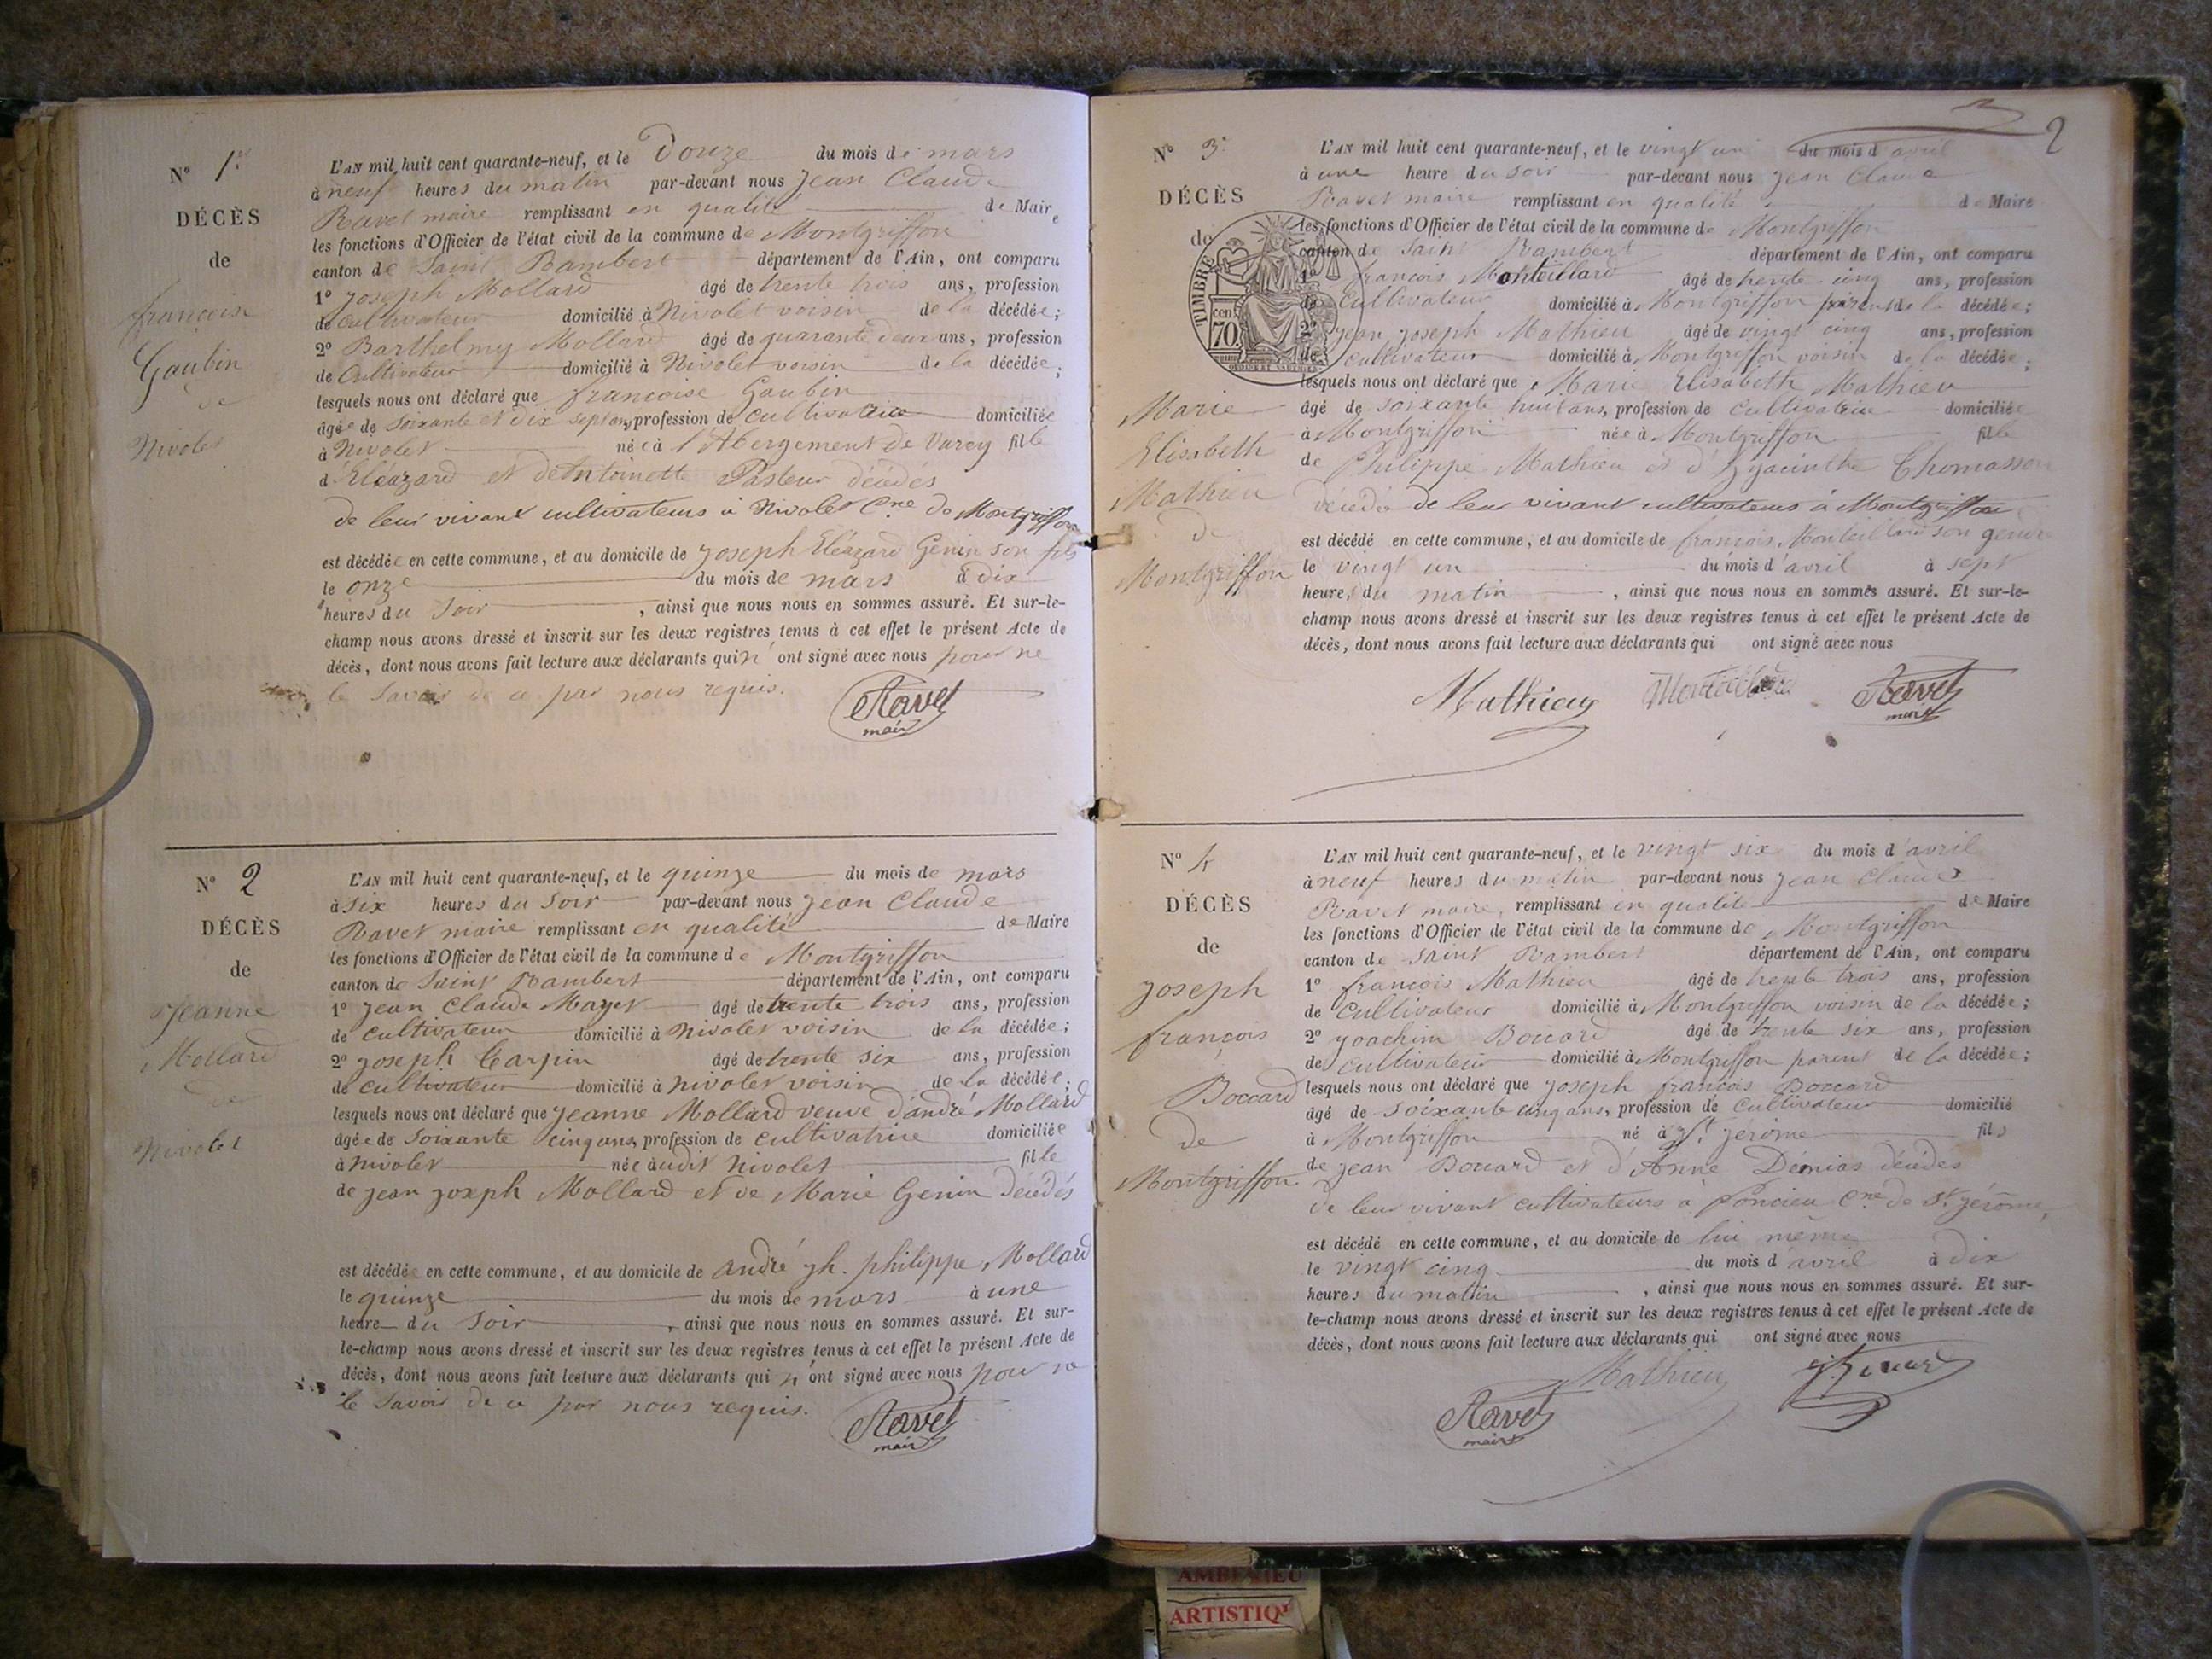 N° 1er
DÉCÈS
de
françoise
Gaubin
de
Nivolet
L'AN mil huit cent quarante-neuf, et le Douze du mois de mars
à neuf heures du matin par-devant nous Jean Claude
Ravet maire remplissant en qualité de Maire
les fonctions d'Officier de l'état civil de la commune de Montgriffon
canton de Saint Rambert département de l'Ain, ont comparu
1° Joseph Mollard âgé de trente trois ans, profession
de cultivateur domicilié à Nivolet voisin de la décédée;
2° Barthelmy Mollard âgé de quarante deux ans, profession
de Cultivateur domicilié à Nivolet voisin de la décédée;
lesquels nous ont déclaré que françoise Gaubin
âgée de soixante et dix sept ans, profession de cultivatrice domiciliée
à Nivolet née à l'Abergement de Varey fille
d'Eléazard et de Antoinette Pasteur décédés
de leur vivant cultivateurs à Nivolet Cne de Montgriffon
est décédée en cette commune, et au domicile de Joseph Eléazard Genin son fils
le onze du mois de mars à dix
heures du soir, ainsi que nous nous en sommes assuré. Et sur-le-
champ nous avons dressé et inscrit sur les deux registres tenus à cet effet le présent Acte de
décès, dont nous avons fait lecture aux déclarants qui n'ont signé avec nous pour ne
le savoir de ce par nous requis.
Ravet
maire
N° 2
DÉCÈS
de
Jeanne
Mollard
de
Nivolet
L'AN mil huit cent quarante-neuf, et le quinze du mois de mars
à six heures du soir par-devant nous Jean Claude
Ravet maire remplissant en qualité de Maire
les fonctions d'Officier de l'état civil de la commune de Montgriffon
canton de Saint Rambert département de l'Ain, ont comparu
1° Jean Claude Mayet âgé de trente trois ans, profession
de cultivateur domicilié à Nivolet voisin de la décédée;
2° Joseph Carpin âgé de trente six ans, profession
de cultivateur domicilié à Nivolet voisin de la décédée;
lesquels nous ont déclaré que Jeanne Mollard veuve d'andré Mollard
âgée de soixante cinq ans, profession de cultivatrice domiciliée
à Nivolet née audit Nivolet fille
de Jean Joseph Mollard et de Marie Genin décédés
est décédée en cette commune, et au domicile de andré jh. philippe Mollard
le quinze du mois de mars à une
heure du soir, ainsi que nous nous en sommes assuré. Et sur-
le-champ nous avons dressé et inscrit sur les deux registres tenus à cet effet le présent Acte de
décès, dont nous avons fait lecture aux déclarants qui n'ont signé avec nous pour ne
le savoir de ce par nous requis.
Ravet
maire
2
N° 3
DÉCÈS
de
TIMBRE
70 cent
Marie
Elisabeth
Mathieu
de
Montgriffon
L'AN mil huit cent quarante-neuf, et le vingt un du mois d'avril
à une heure du soir par-devant nous Jean Claude
Ravet maire remplissant en qualité de Maire
les fonctions d'Officier de l'état civil de la commune de Montgriffon
canton de Saint Rambert département de l'Ain, ont comparu
1° françois Monteillard âgé de trente cinq ans, profession
de Cultivateur domicilié à Montgriffon parent de la décédée;
2° Jean Joseph Mathieu âgé de vingt cinq ans, profession
de cultivateur domicilié à Montgriffon voisin de la décédée;
lesquels nous ont déclaré que Marie Elisabeth Mathieu
âgé de soixante huit ans, profession de cultivatrice domiciliée
à Montgriffon née à Montgriffon fille
de Philippe Mathieu et d'hyacinthe Thomasson
décédés de leur vivant cultivateurs à Montgriffon
est décédé en cette commune, et au domicile de françois Monteillard son gendre
le vingt un du mois d'avril à sept
heures du matin, ainsi que nous nous en sommes assuré. Et sur-le-
champ nous avons dressé et inscrit sur les deux registres tenus à cet effet le présent Acte de
décès, dont nous avons fait lecture aux déclarants qui ont signé avec nous
Mathieu Monteillard Ravet
maire
N° 4
DÉCÈS
de
Joseph
françois
Boccard
de
Montgriffon
L'AN mil huit cent quarante-neuf, et le vingt six du mois d'avril
à neuf heures du matin par-devant nous Jean Claude
Ravet maire, remplissant en qualité de Maire
les fonctions d'Officier de l'état civil de la commune de Montgriffon
canton de Saint Rambert département de l'Ain, ont comparu
1° françois Mathieu âgé de trente trois ans, profession
de Cultivateur domicilié à Montgriffon voisin de la décédée;
2° Joachim Boccard âgé de trente six ans, profession
de cultivateur domicilié à Montgriffon parent de la décédée;
lesquels nous ont déclaré que Joseph françois Boccard
âgé de soixante cinq ans, profession de Cultivateur domicilié
à Montgriffon né à St jérôme fils
de Jean Boccard et d'Anne Démias décédés
de leur vivant cultivateurs à Poncieu Cne de St jérôme,
est décédé en cette commune, et au domicile de lui même
le vingt cinq du mois d'avril à dix
heures du matin, ainsi que nous nous en sommes assuré. Et sur-
le-champ nous avons dressé et inscrit sur les deux registres tenus à cet effet le présent Acte de
décès, dont nous avons fait lecture aux déclarants qui ont signé avec nous
Mathieu
Ravet
maire
AMBERIEU
ARTISTIQ